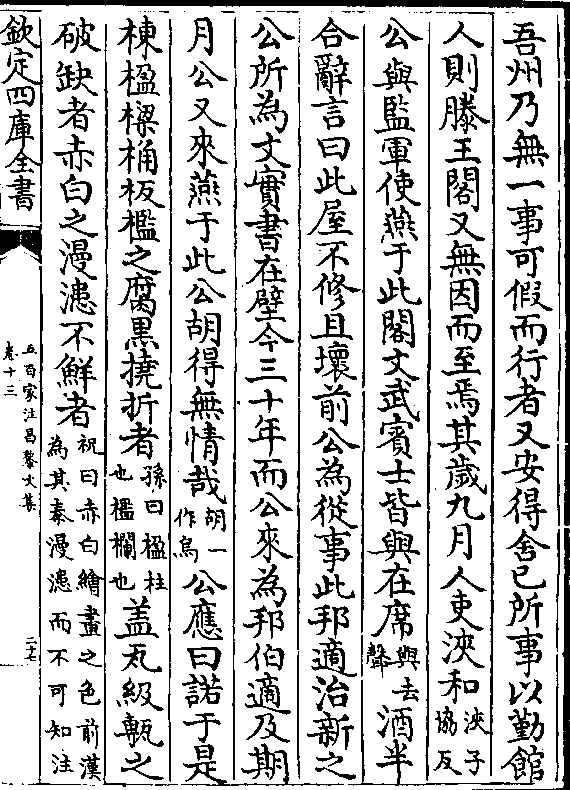 吾州乃無一事可假而行者又安得舍已所事以勤館
人則滕王閣又無因而至焉其歲九月人吏浹和浹子協反
公與監軍使燕于此閣文武賓士皆與在席與去聲酒半
合辭言曰此屋不修且壞前公為從事此邦適治新之
公所為文實書在壁今三十年而公來為邦伯適及期
月公又來燕于此公胡得無情哉胡一作烏公應曰諾于是
棟楹梁桷板檻之腐黑撓折者孫曰楹柱也檻欄也盖瓦級甎之
破缺者赤白之漫漶不鮮者祝曰赤白繪畫之色前漢為其泰漫漶而不可知注
欽定四庫全書
五百家注昌黎文集
卷十三
二十七